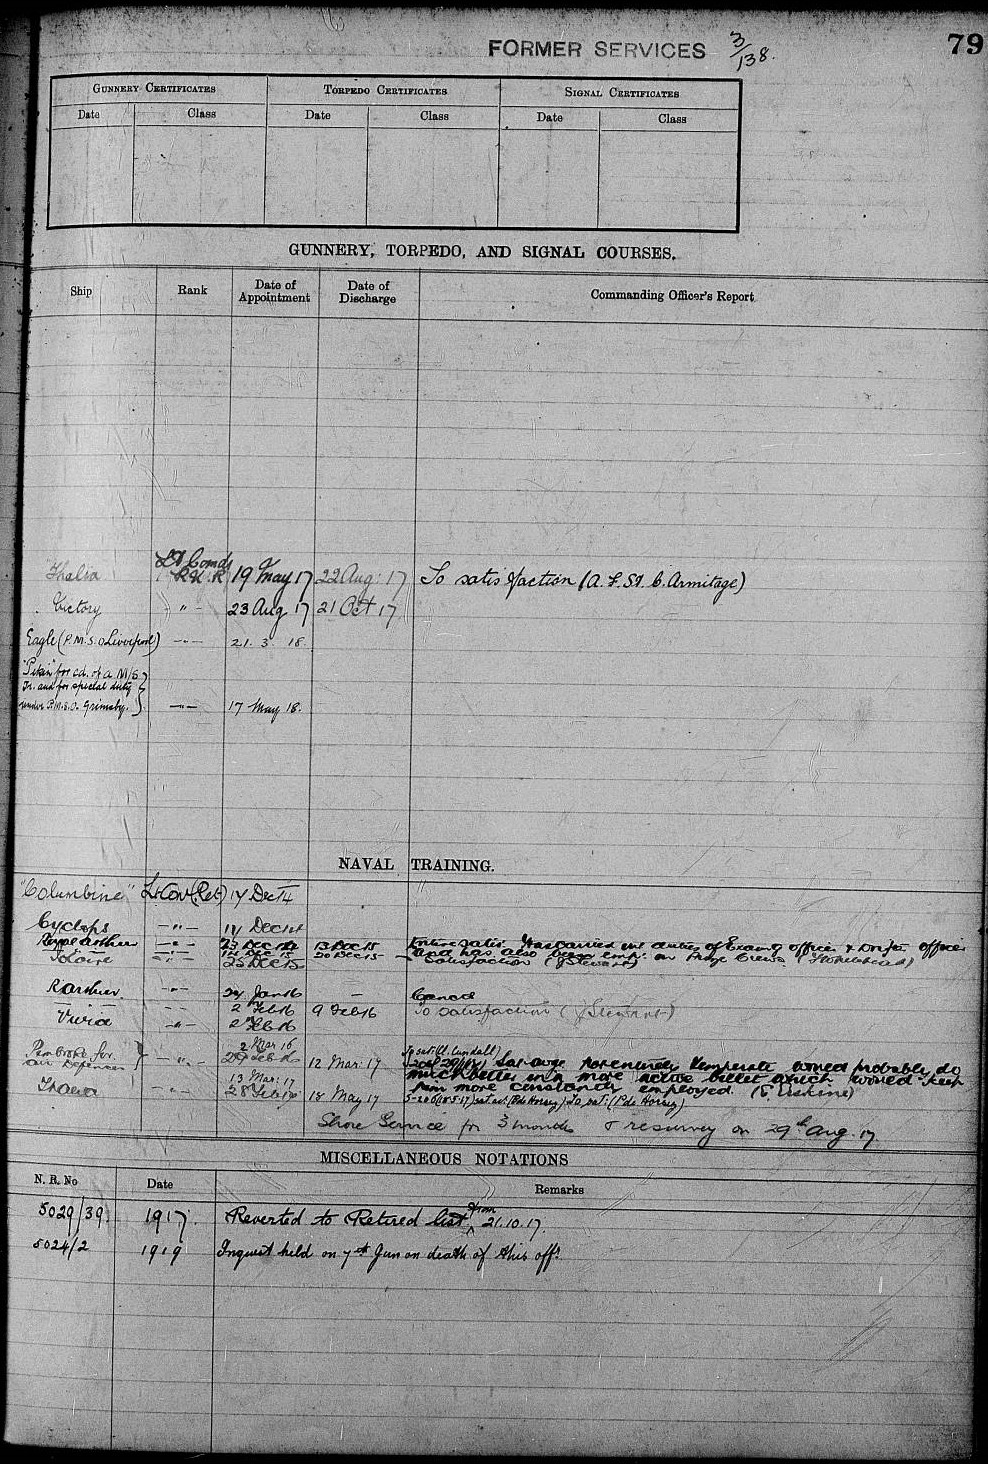 FORMER SERVICES 3/138.
79
GUNNERY CERTIFICATES TORPEDO CERTIFICATES SIGNAL CERTIFICATES
Date Class Date Class Date Class
GUNNERY, TORPEDO, AND SIGNAL COURSES.
Ship Rank Date of Appointment Date of Discharge Commanding Officer's Report
Thalia Lt Comdr R.N.R 19 May 17 22 Aug: 17 To satisfaction (A. F. St. C. Armitage)
Victory -"- 23 Aug 17 21 Oct 17
Eagle (P.M.S.O Liverpool) -"- 21. 3. 18.
"Pekin" for cd. of a M/S
Tr. and for special duty
under P.M.S.O. Grimsby. -"- 17 May 18.
NAVAL TRAINING.
"Columbine" Lt Com (Ret) 14 Dec 14
Cyclops -"- 14 Dec 14
Royal Arthur -"- 13 Dec 15 Entire satis. Has carried out duties of Examg officer & Drifter officer
-"- 14 Dec 15 20 Dec 15 and has also been emp. on Prize Crews
-"- 25 Dec 15 Satisfaction (J Stewart)
-"- 24 Jan 16 - Cancd
2 Feb 16 9 Feb 16 To satisfaction (J Stewart)
-"- 2 Feb 16
Pembroke for
air Defences -"- 2 Mar 16 12 Mar: 17
Sat. ought
much better in a more active billet which would keep
him more constantly employed. (S. Erskine)
13 Mar: 17
18 May 17 (P de Horsey) To sat: (P de Horsey)
Shore Service for 3 months & resurvey on 29th Aug. 17
MISCELLANEOUS NOTATIONS
N. R. No Date Remarks
5029/39. 1917. Reverted to Retired list from 21.10.17.
5024/2 1919 Inquest held on 7th Jun on death of this offr.